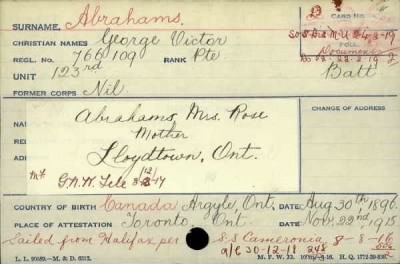 SURNAME, Abrahams.
CARD NO.
CHRISTIAN NAMES George Victor
FOLL.
REGL. NO. 766109 RANK Pte
Documents
UNIT 123rd Batt
FORMER CORPS Nil
Abrahams, Mrs. Rose
CHANGE OF ADDRESS
Mother
Lloydtown, Ont.
COUNTRY OF BIRTH Canada Argyle, Ont. DATE Aug 30th 1896
PLACE OF ATTESTATION Toronto, Ont DATE Nov. 22nd 1915
Sailed from Halifax per S.S Cameronia 8-8-16
30-12-18
L. L. M. & D.